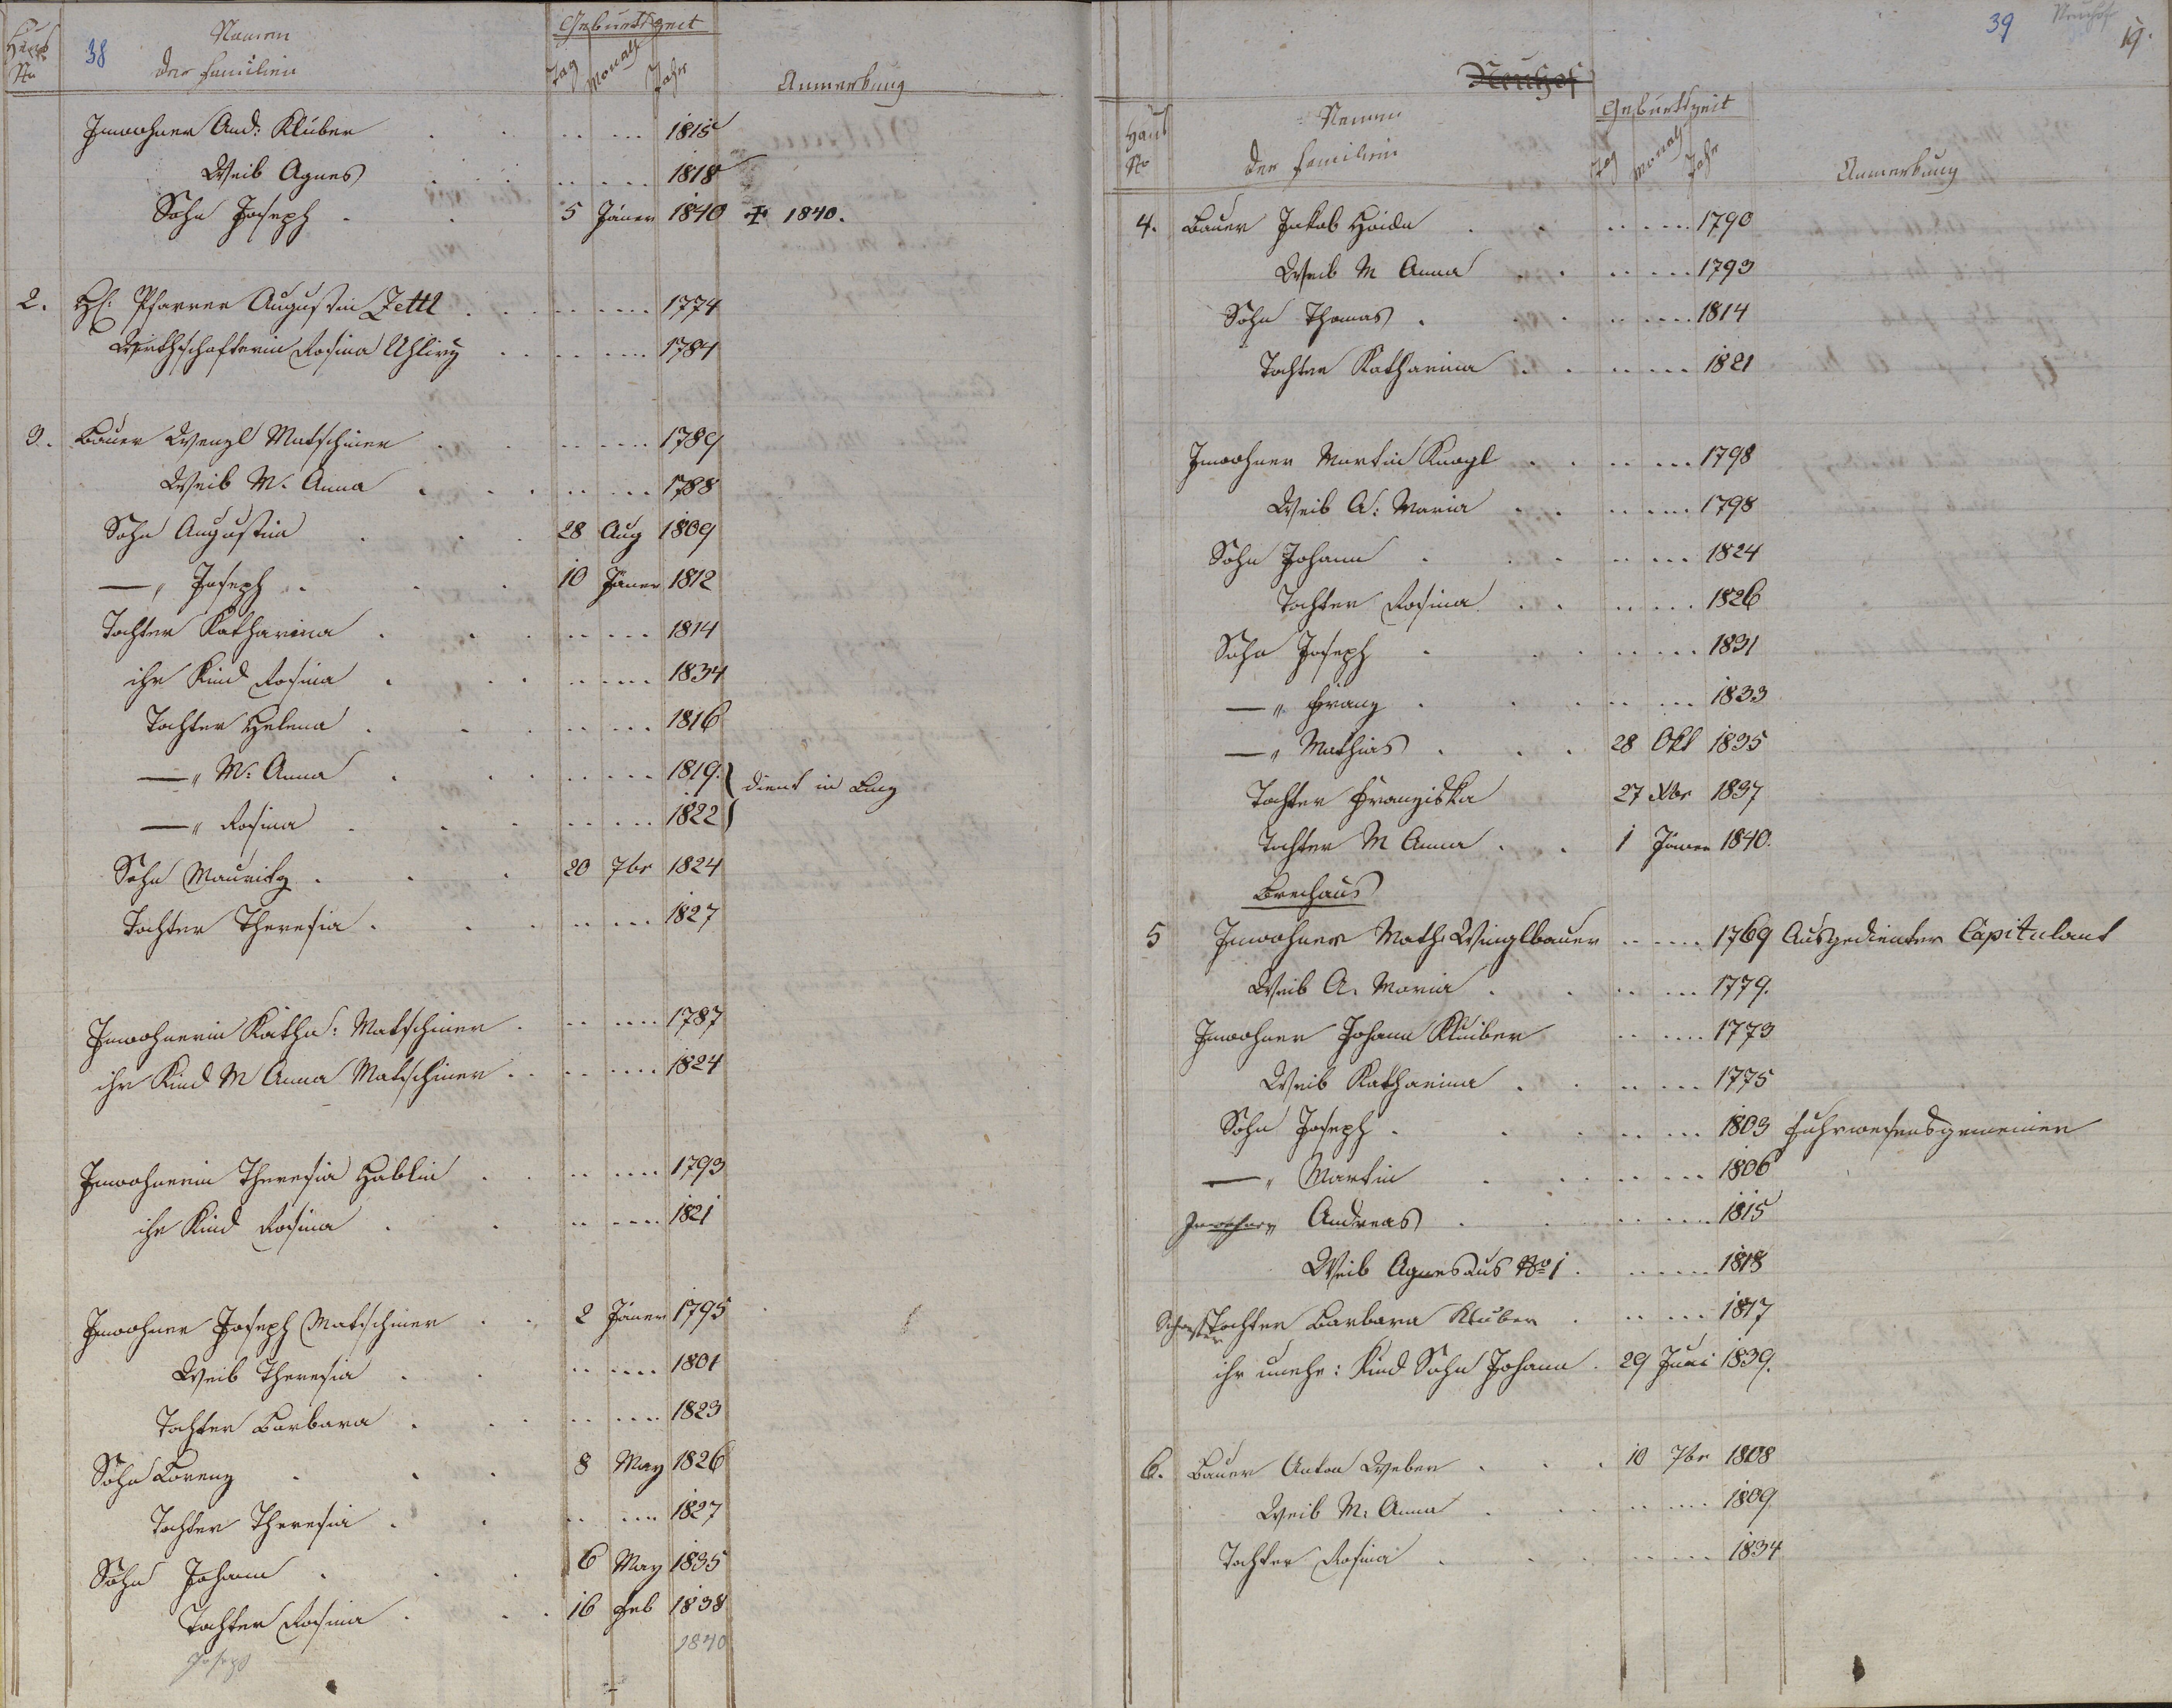 38
Haus No
Namen der Familien
Geburtszeit
Tag Monath Jahr
Anmerkung
Inwohner And: Kluber 1815
Weib Agnes 1818
Sohn Joseph 5 Jäner 1840 ✝ 1840.
2. H: Pfarrer Augustin Zettl 1774
Wirthschafterin Rosina Uhlirz 1784
3. Bauer Wenzl Matschiner 1789
Weib M. Anna 1788
Sohn Augustin 28 Aug 1809
—„ Joseph 10 Jäner 1812
Tochter Katharina 1814
ihr Kind Rosina 1834
Tochter Helena 1816
—„ M: Anna 1819. dient in Linz
—„ Rosina 1822
Sohn Mauritz 20 7br 1824
Tochter Theresia 1827
Inwohnerin Katha: Matschiner 1787
ihr Kind M Anna Matschiner 1824
Inwohnerin Theresia Hablin 1793
ihr Kind Rosina 1821
Inwohner Joseph Matschiner 2 Jäner 1795
Weib Theresia 1801
Tochter Barbara 1823
Sohn Lorenz 8 May 1826
Tochter Theresia 1827
Sohn Johann 6 May 1835
Tochter Rosina 16 Feb 1838
Joseph 1840
39 Neuhof 19.
Neuhof
Haus No
Namen der Familien
Geburtszeit
Tag Monath Jahr
Anmerkung
4. Bauer Jakob Hoida 1790
Weib M Anna 1793
Sohn Thomas 1814
Tochter Katharina 1821
Inwohner Martin Knogl 1798
Weib A: Maria 1798
Sohn Johann 1824
Tochter Rosina 1826
Sohn Joseph 1831
—„ Franz 1833
—„ Mathias 28 Okt 1835
Tochter Franziska 27 Xbr 1837
Tochter M Anna 1 Jäner 1840.
Brechaus
5 Inwohner Math: Winglbauer 1769 Ausgedienter Capitulant
Weib A. Maria 1779.
Inwohner Johann Kluiber 1773
Weib Katharina 1775
Sohn Joseph 1803 Fuhrwesensgemeiner
—„ Martin 1806
Inwohner Andreas 1815
Weib Agnes aus No 1 1818
Schwester Tochter Barbara Kluber 1817
ihr unehe: Kind Sohn Johann 29 Juni 1839.
6. Bauer Anton Weber 10 7br 1808
Weib M: Anna 1809
Tochter Rosina 1834